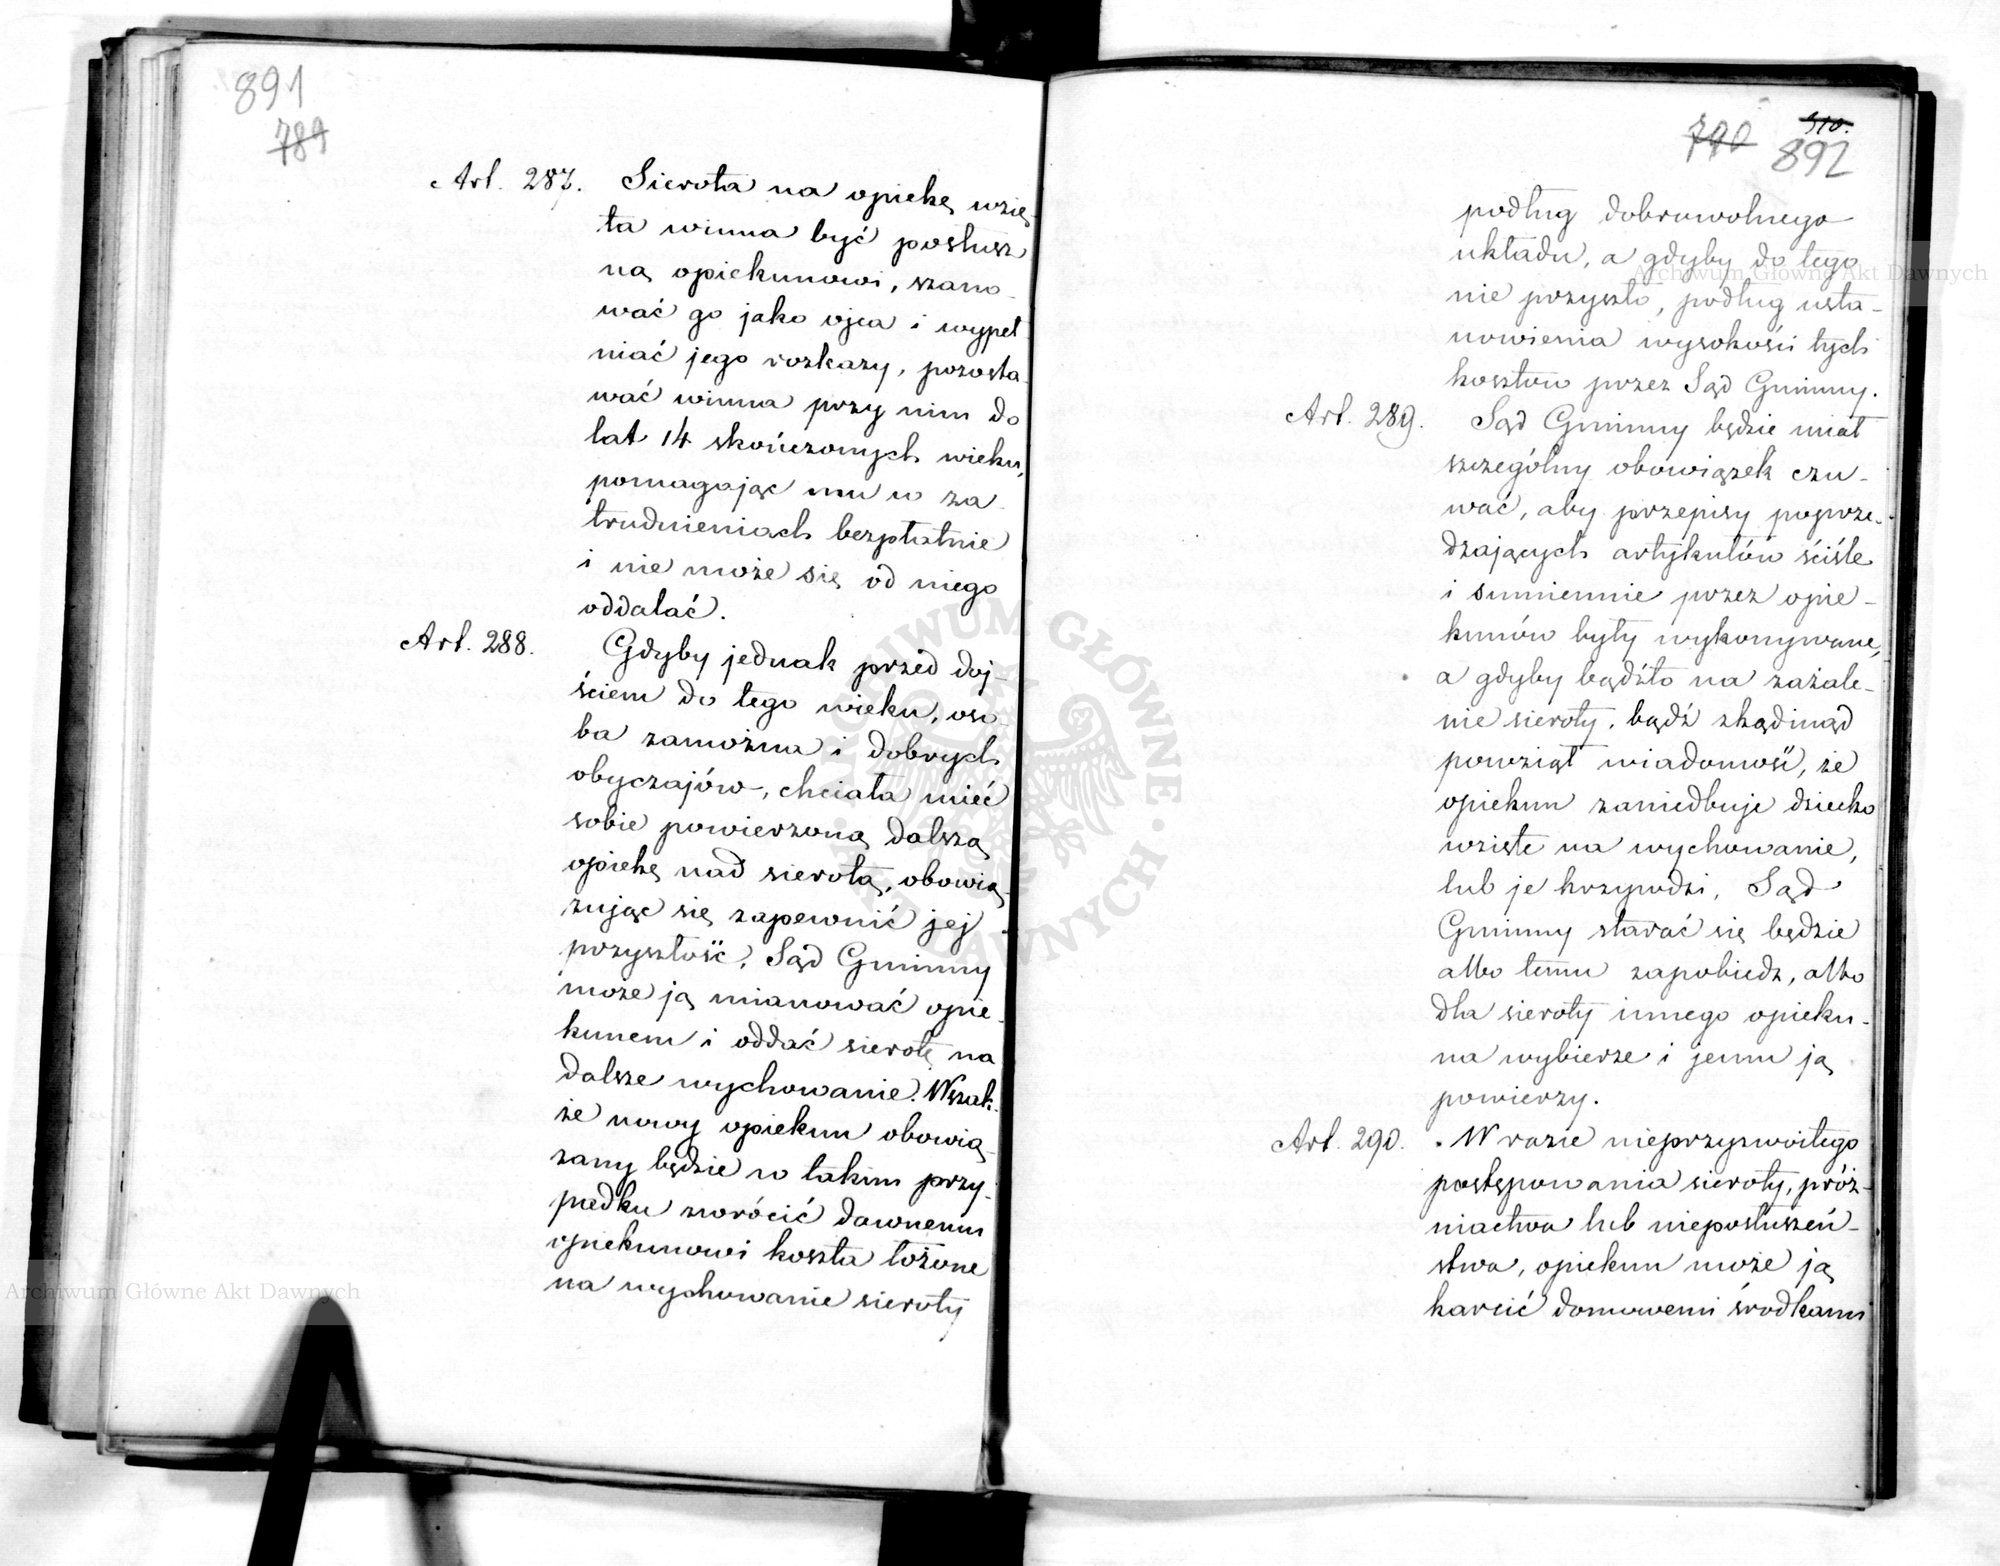 891
789
Art. 287. Sierota na opiekę wzię-
ta winna być posłusz
ną opiekunowi, szano-
wać go jako ojca i wypeł
niać jego rozkazy, pozosta-
wać winna przy nim do
lat 14 skończonych wieku,
pomagając mu w za-
trudnieniach bezpłatnie
i nie może się od niego
oddalać.
Art. 288. Gdyby jednak przed doj-
ściem do tego wieku, oso-
ba zamożna i dobrych
obyczajów, chciała mieć
sobie powierzoną dalszą
opiekę nad sierotą, obowią-
zując się zapewnić jej
przyszłość, Sąd Gminny
może ją mianować opie-
kunem i oddać sierotę na
dalsze wychowanie. Wszak-
że nowy opiekun obowią-
zany będzie w takim przy-
padku zwrócić dawnemu
opiekunowi koszta łożone
na wychowanie sieroty
790 310.
892
podług dobrowolnego
układu, a gdyby do tego
nie przyszło, podług usta-
nowienia wysokości tych
kosztów przez Sąd Gminny.
Art. 289. Sąd Gminny będzie miał
szczególny obowiązek czu-
wać, aby przepisy poprze-
dzających artykułów ściśle
i sumiennie przez opie-
kunów były wykonywane,
a gdyby bądźto na zażale-
nie sieroty, bądź zkądinąd
powziął wiadomość, że
opiekun zaniedbuje dziecko
wzięte na wychowanie,
lub je krzywdzi, Sąd
Gminny starać się będzie
albo temu zapobiedz, albo
dla sieroty innego opieku-
na wybierze i jemu ją
powierzy.
Art. 290. W razie nieprzyzwoitego
postępowania sieroty, próż-
niactwa lub nieposłuszeń-
stwa, opiekun może ją
karcić domowemi środkami
Archiwum Główne Akt Dawnych
Archiwum Główne Akt Dawnych
ARCHIWUM GŁÓWNE AKT DAWNYCH